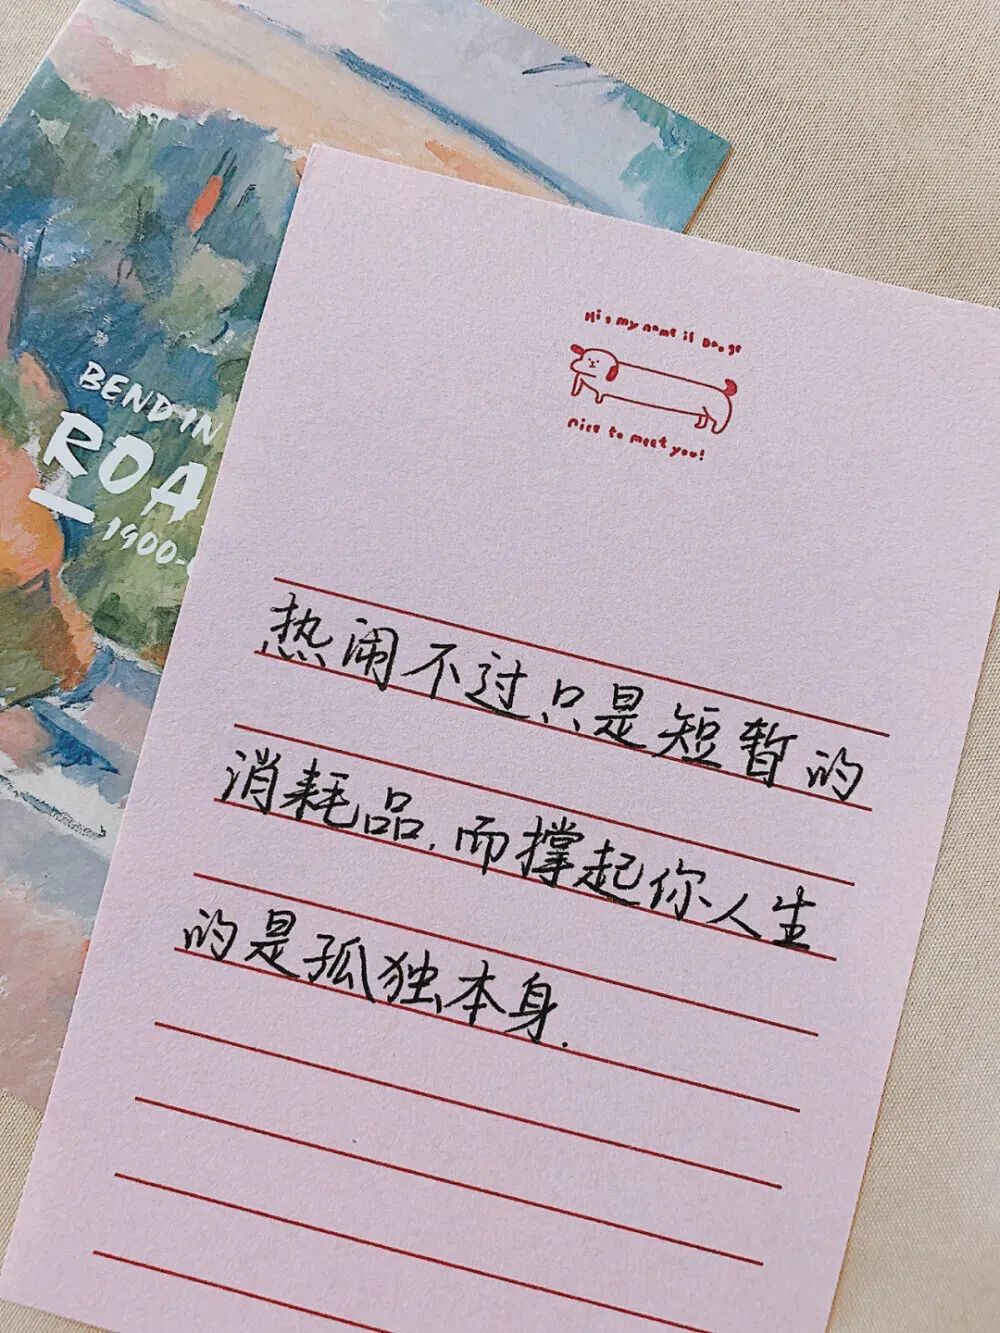 BEND IN
ROA
1900-
Hi, my name is
nice to meet you!
热闹不过只是短暂的
消耗品.而撑起你人生
的是孤独本身.